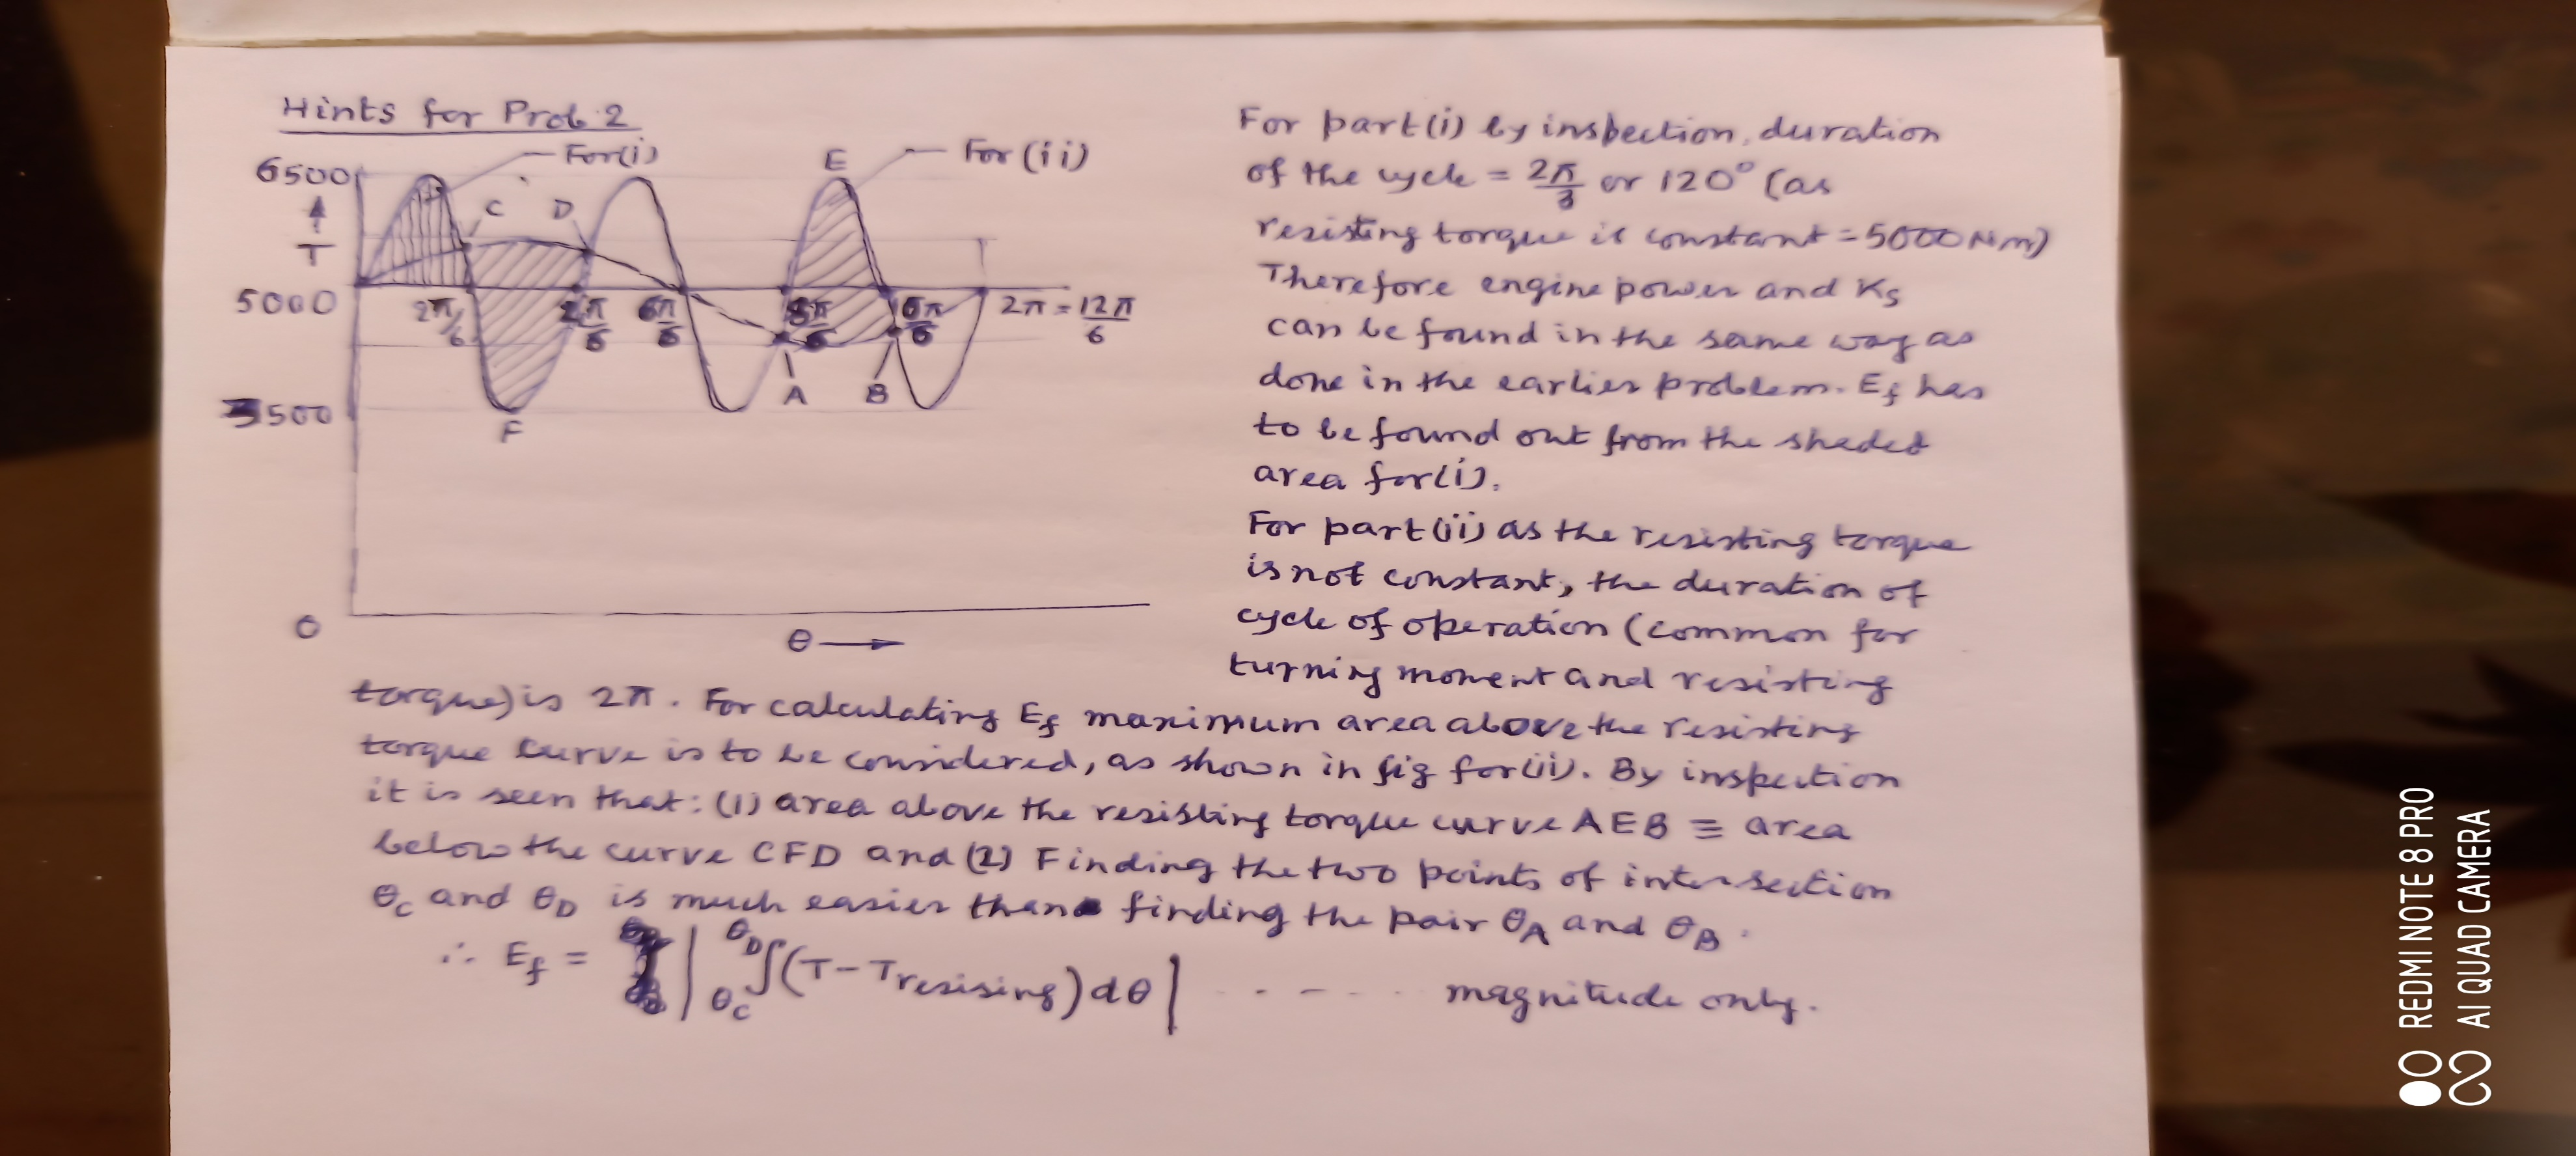 Hints for Prob. 2
For(i)
E
For (ii)
6500
C
D
T
5000
2π/6
6π/6
2π = 12π/6
A
B
3500
F
0
θ →
For part(i) by inspection, duration
of the cycle = 2π/3 or 120° (as
resisting torque is constant = 5000 Nm)
Therefore engine power and Ks
can be found in the same way as
done in the earlier problem. Ef has
to be found out from the shaded
area for(i).
For part(ii) as the resisting torque
is not constant, the duration of
cycle of operation (common for
turning moment and resisting
torque) is 2π. For calculating Ef maximum area above the resisting
torque curve is to be considered, as shown in fig for(ii). By inspection
it is seen that: (1) area above the resisting torque curve AEB ≡ area
below the curve CFD and (2) Finding the two points of intersection
θC and θD is much easier than finding the pair θA and θB.
∴ Ef = | θC∫θD (T - Tresising) dθ | ........ magnitude only.
REDMI NOTE 8 PRO
AI QUAD CAMERA